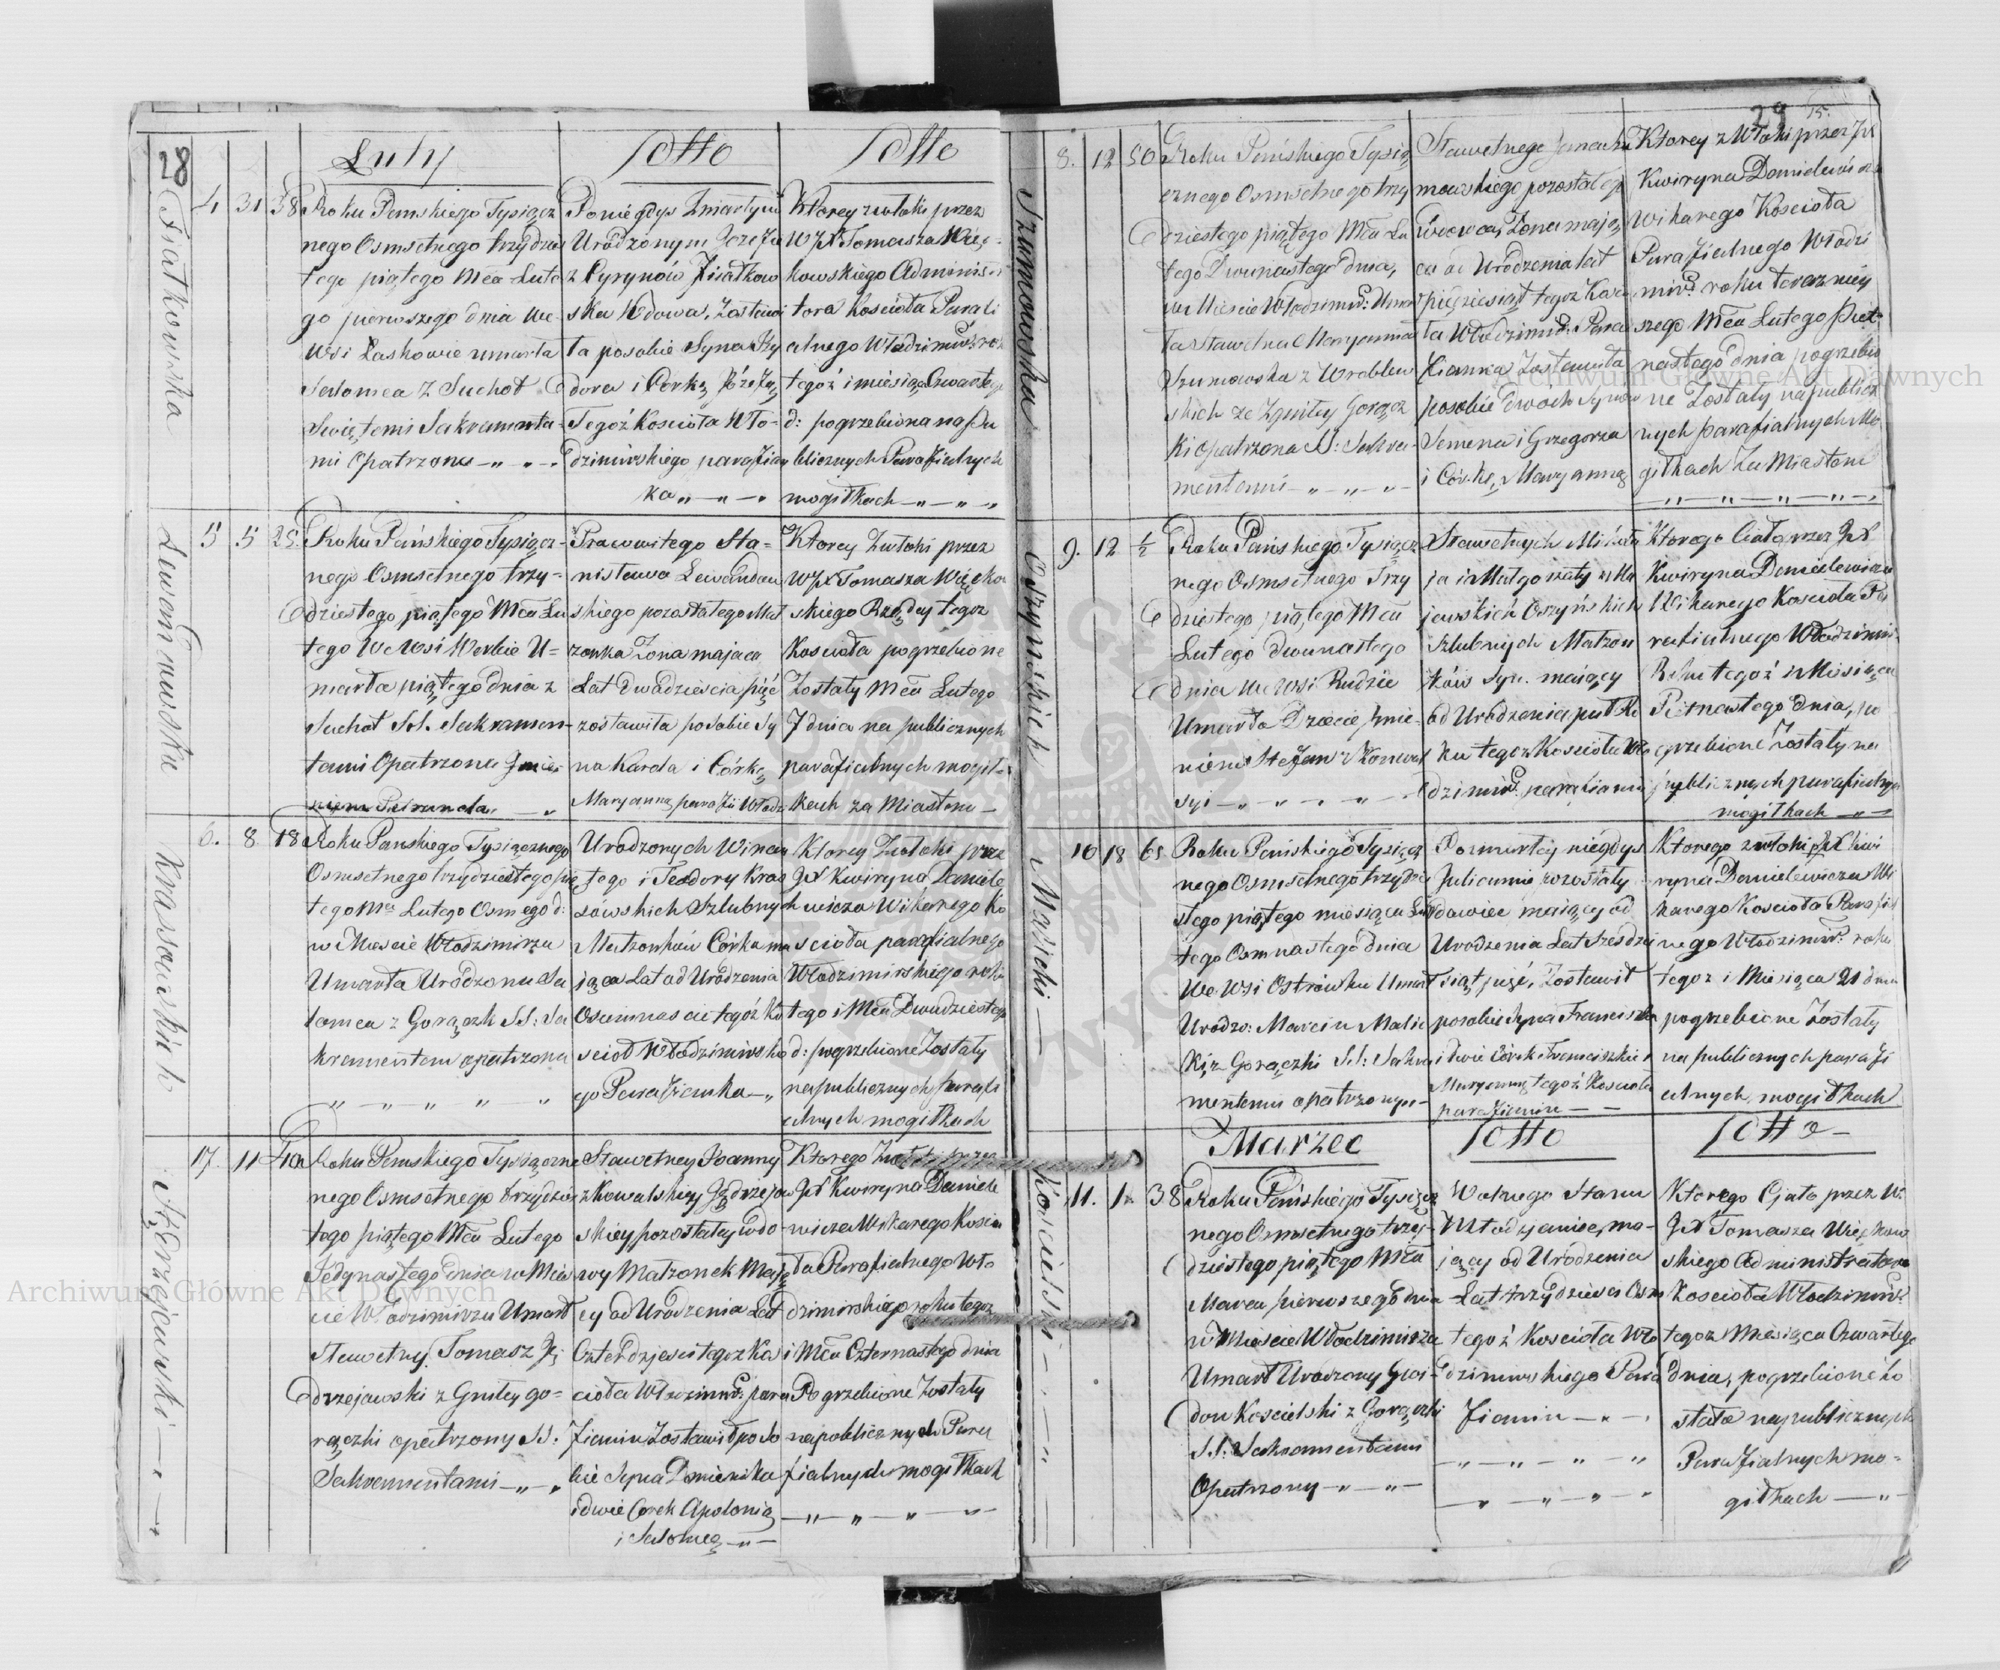 28
Luty
Dtto
Dtto
Fiałkowska
4 31 38
Roku Pańskiego Tysiącz
nego Osmsetnego trzydzies
tego piątego Mca Lute
go pierwszego dnia we
Wsi Laskowie umarła
Salomea z Suchot
Swiętemi Sakramenta-
mi Opatrzona
Poniegdys Zmartym
Urodzonym Jozefie
z Cyrynów Fiałkow
ska Wdowa, Zostawi
ła posobie Syna Izy
dora i Corkę Józefę,
Tegoż Kościoła Wło-
dzimirskiego parafian
ka
Ktorey zwłoki przez
WJX Tomasza Więc-
kowskiego Adminis
tora Kościoła Parafi
alnego Włodzimir: rok
tegoż i miesiąca Czwartego
d: pogrzebiona na Pu
blicznych Parafialnych
mogiłkach
Lewandowska
5 5 25
Roku Pańskiego Tysiącz-
nego Osmsetnego trzy-
dziestego piątego Mca Lu
tego We Wsi Werbie U=
marła piątego dnia z
Suchot SS. Sakramen-
tami Opatrzona Imie
niem Petronela
Pracowitego Sta-
nisława Lewandow
skiego pozostałego Mał
zonka Zona maiąca
Lat Dwadzieścia pięć
zostawiła posobie Sy
na Karola i Córkę
Maryannę, parafii Włodz
Ktorey Zwłoki przez
WJX Tomasza Więcko
wskiego Rządcy tegoz
Kościoła pogrzebione
Zostały Mca Lutego
7 dnia na publicznych
parafialnych mogił-
kach za Miastem
Krassowskich
6. 8 18
Roku Panskiego Tysiącznego
Osmsetnego trzydziestego pią
tego Mca Lutego Osmego d:
w Miescie Włodzimirzu
Umarła Urodzona Sa
lomea z Gorączk SS: Sa
kramentem opatrzona
Urodzonych Wincen
tego i Teodory Kras
sowskich Szlubnych
Małzonków Córka ma
jąca Lat od Urodzenia
Osiemnascie tegóż Ko
scioł Włodzimirsko
go Parafianka
Ktorey Zwłoki przez
JX Kwiryna Daniele
wicza Wikarego Ko
scioła parafialnego
Włodzimirskiego roku
tego i Mca Dwudziestego
d: pogrzebione Zostały
na publicznych parafi
alnych mogiłkach
Jędrzejewski
17. 11 40
Roku Pańskiego Tysiączne
nego Osmsetnego trzydzies
tego piątego Mca Lutego
Jedynastego dnia w Mies
cie Włodzimirzu Umarł
Sławetny Tomasz Ję
drzejawski z Gniłey go-
rączki opatrzony SS:
Sakramentami
Sławetney Joanny
z Kowalskiey Jędrzejow
skiey pozostały wdo
wy Małzonek Mają
cy od Urodzenia Lat
Czterdziesci tegoz Ko
cioła Włodzimir: para
fianin Zostawił poso
bie Syna Dominika
i dwie Corek Apolonią
i Salomeą
Ktorego Zwłok przez
JX Kwiryna Daniele
wicza Wikarego Koscio
ła Parafialnego Wło
dzimirskiego roku tegoz
i Mca Czternastego dnia
Pogrzebione Zostały
na publicznych Para
fialnych mogiłkach
29 15.
Szumowska
8. 12 50
Roku Pańskiego Tysią
cznego Osmsetnego trzy
dziestego piątego Mca Lu
tego Dwunastego dnia,
we Miescie Włodzimir: Umar
ła Sławetna Maryanna
Szumowska z Wroblew
skich ze Zgniłey Gorącz
ki opatrzona S: Sakra-
mentami
Sławetnego
mowskiego pozostałego
Wdowca, Zona mają
ca od Urodzenia lat
pięćdziesiąt tegoz Koscio
ła Włodzimir: Para
fianka Zostawiła
posobie dwoch Synow
Semena i Grzegorza
i Córkę Maryannę
Ktorey zwłoki przez JX
Kwiryna Danielewicza
Wikarego Kościoła
Parafialnego Włodzi
mir: roku terazniey
szego Mca Lutego Pięt
nastego dnia pogrzebio
ne Zostały na publicz
nych parafialnych mo
giłkach Za Miastem
Oszynskich
9. 12 ½
Roku Pańskiego Tysiącz
nego Osmsetnego Trzy
dziestego piątego Mca
Lutego dwunastego
dnia we Wsi Rudzie
Umarło Dziecie Imie-
niem Stefan z Konwul
syi
Sławetnych Mikoła
ja i Małgorzaty z Ma
jewskich Oszyńskich
Szlubnych Małzon
ków Syn. maiący
od Urodzenia puł Ro
ku tegoz Kościoła Wło
dzimir: parafianin
Ktorego Ciało przez JX
Kwiryna Danielewicza
Wikarego Kościoła Pa
rafialnego Włodzimir:
Roku tegoż i Miesiąca
Piętnastego dnia, po
grzebione Zostały na
publicznych parafialnych
mogiłkach
Malicki
10 18 65
Roku Pańskiego Tysiącz
nego Osmsetnego trzydzie
stego piątego miesiąca Lu
tego Osmnastego dnia
We Wsi Ostrówku Umarł
Urodzo: Marcin Malic
ki z Gorączki SS: Sakra
mentemi opatrzony
Pozmarłej niegdys
Juliannie pozostały
wdowiec maiący od
Urodzenia Lat Szesdzie
siąt pięć, Zostawił
posobie Syna Franciszka
i dwie Córek Franciszkę i
Maryannę tegoż Kościoła
parafianin
Ktorego zwłoki JX Kwi
ryna Danielewicza Wi
karego Kościoła Parafial
nego Włodzimir: roku
tegoz i Miesiąca 21 dnia
pogrzebione Zostały
na publicznych parafi
alnych mogiłkach
Marzec
Dtto
Dtto
Koscielski
11. 1. 38
Roku Pańskiego Tysiącz
nego Osmsetnego trzy-
dziestego piątego Mca
Marca pierwszego dnia
w Miescie Włodzimirzu
Umarł Urodzony Gwi-
don Koscielski z Gorączki
SS: Sakramentami
Opatrzony
Wolnego Stanu
Młodzianiec, ma-
jący od Urodzenia
Lat trzydziesci Osm
tegoż Kościoła Wło
dzimirskiego Para
fianin
Ktorego Cjało przez W:
JX Tomasza Więckow
skiego Administratora
Kościoła Włodzimir:
tegoz Miesiąca Czwartego
dnia, pogrzebione zo
stało na publicznych
Parafialnych mo-
giłkach
Archiwum Główne Akt Dawnych
Archiwum Główne Akt Dawnych